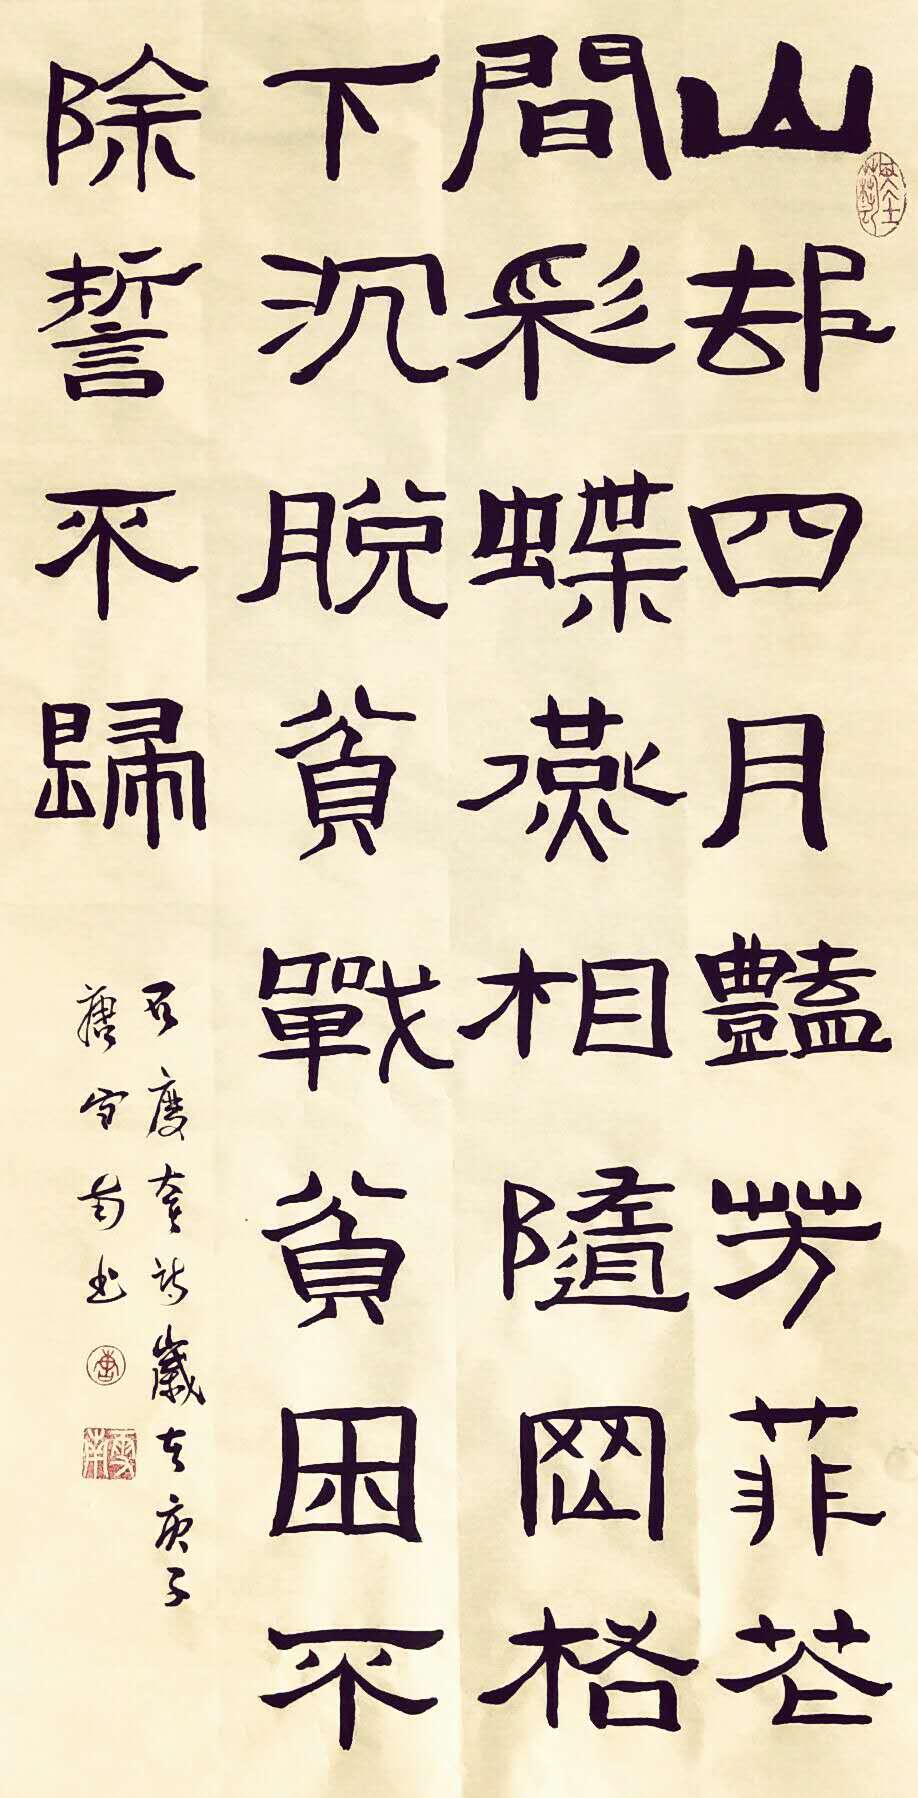 山却四月豔芳菲花
間彩蝶燕相隨岡格
下沉脫貧戰貧困不
除誓不歸
詩歲在庚子
唐雪南书